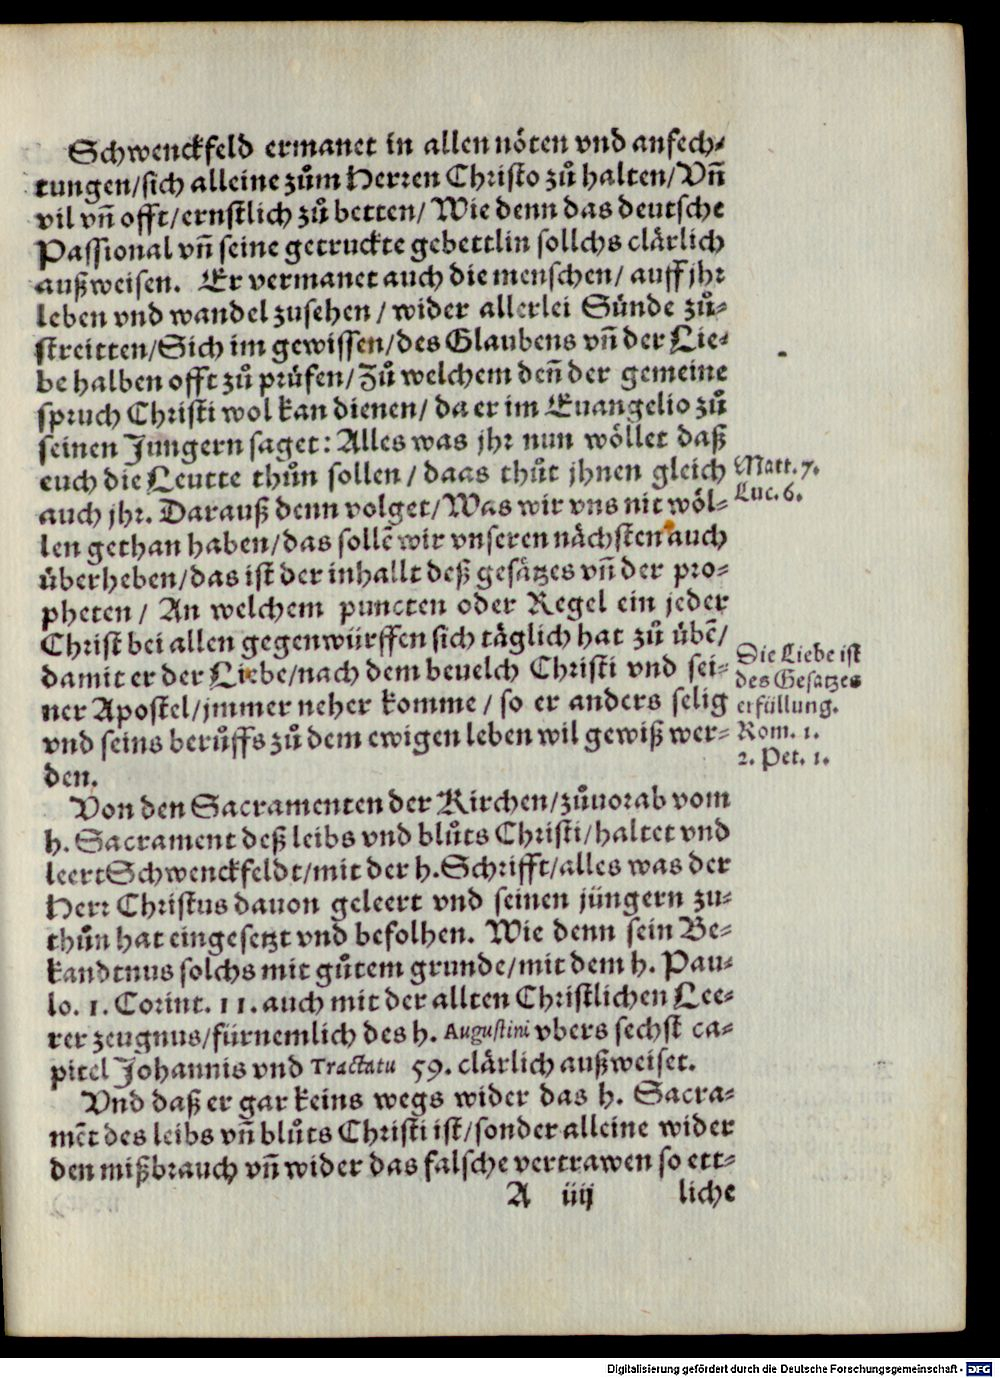 Schwenckfeld ermanet in allen nöten vnd anfech⸗
tungen/sich alleine zům Herren Christo zů halten/Vñ
vil vñ offt/ernstlich zů betten/ Wie denn das deutsche
Passional vñ seine getruckte gebettlin sollchs clärlich
außweisen. Er vermanet auch die menschen/ auff jhr
leben vnd wandel zusehen / wider allerlei Sünde zů⸗
streitten/Sich im gewissen/des Glaubens vñ der Lie⸗
be halben offt zů prüfen/Zů welchem deñ der gemeine
spruch Christi wol kan dienen/ da er im Euangelio zů
seinen Jungern saget: Alles was jhr nun wöllet daß
euch die Leutte thůn sollen / daas thůt jhnen gleich
auch jhr. Darauß denn volget/Was wir vns nit wöl⸗
len gethan haben/das sollẽ wir vnseren nächsten auch
überheben/das ist der inhallt deß gesätzes vñ der pro⸗
pheten / An welchem puncten oder Regel ein jeder
Christ bei allen gegenwürffen sich täglich hat zů übẽ/
damit er der Liebe/nach dem beuelch Christi vnd sei⸗
ner Apostel/jmmer neher komme / so er anders selig
vnd seins berůffs zů dem ewigen leben wil gewiß wer⸗
den.
Matt. 7.
Luc. 6.
Die Liebe ist
des Gesatzes
erfüllung.
Rom. 1.
2. Pet. 1.
Von den Sacramenten der Kirchen/zůuorab vom
h. Sacrament deß leibs vnd blůts Christi/haltet vnd
leert Schwenckfeldt/mit der h. Schrifft/alles was der
Herr Christus dauon geleert vnd seinen jüngern zu⸗
thůn hat eingesetzt vnd befolhen. Wie denn sein Be⸗
kandtnus solchs mit gůtem grunde/mit dem h. Pau⸗
lo. 1. Corint. 11. auch mit der allten Christlichen Lee⸗
rer zeugnus/fürnemlich des h. Augustini vbers sechst ca⸗
pitel Johannis vnd Tractatu 59. clärlich außweiset.
Vnd daß er gar keins wegs wider das h. Sacra⸗
mẽt des leibs vñ blůts Christi ist/sonder alleine wider
den mißbrauch vñ wider das falsche vertrawen so ett⸗
A iiij liche
Digitalisierung gefördert durch die Deutsche Forschungsgemeinschaft - DFG